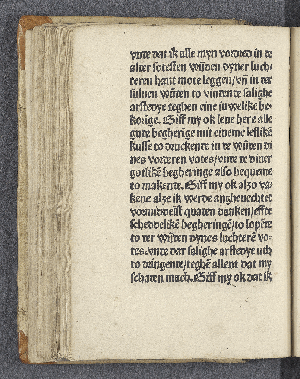 vnte dat ik alle myn vorded in de
alter sotesten wnden dyner luch-
teren hant mote leggen/ vn in der
suluen wnden to vinden de salighe
arstedye teghen eine iuwelike be-
koringe. Giff my ok leue here alle
gude begheringe mit eineme lefliken
kusse to druckende in de wnden di-
nes vorderen votes/ vnde to diner
godliken begheringe also bequeme
to makende. Giff my ok alzo va-
kene alze ik werde angheuechtet
vormiddelst quaden danken/ effte
schedeliken begheringen/ to lopen
to der wnden dynes luchteren vo-
tes. vnde dar salighe arstedye vth
to dringende/ teghen allent dat my
schaden mach. Giff my ok dat ik